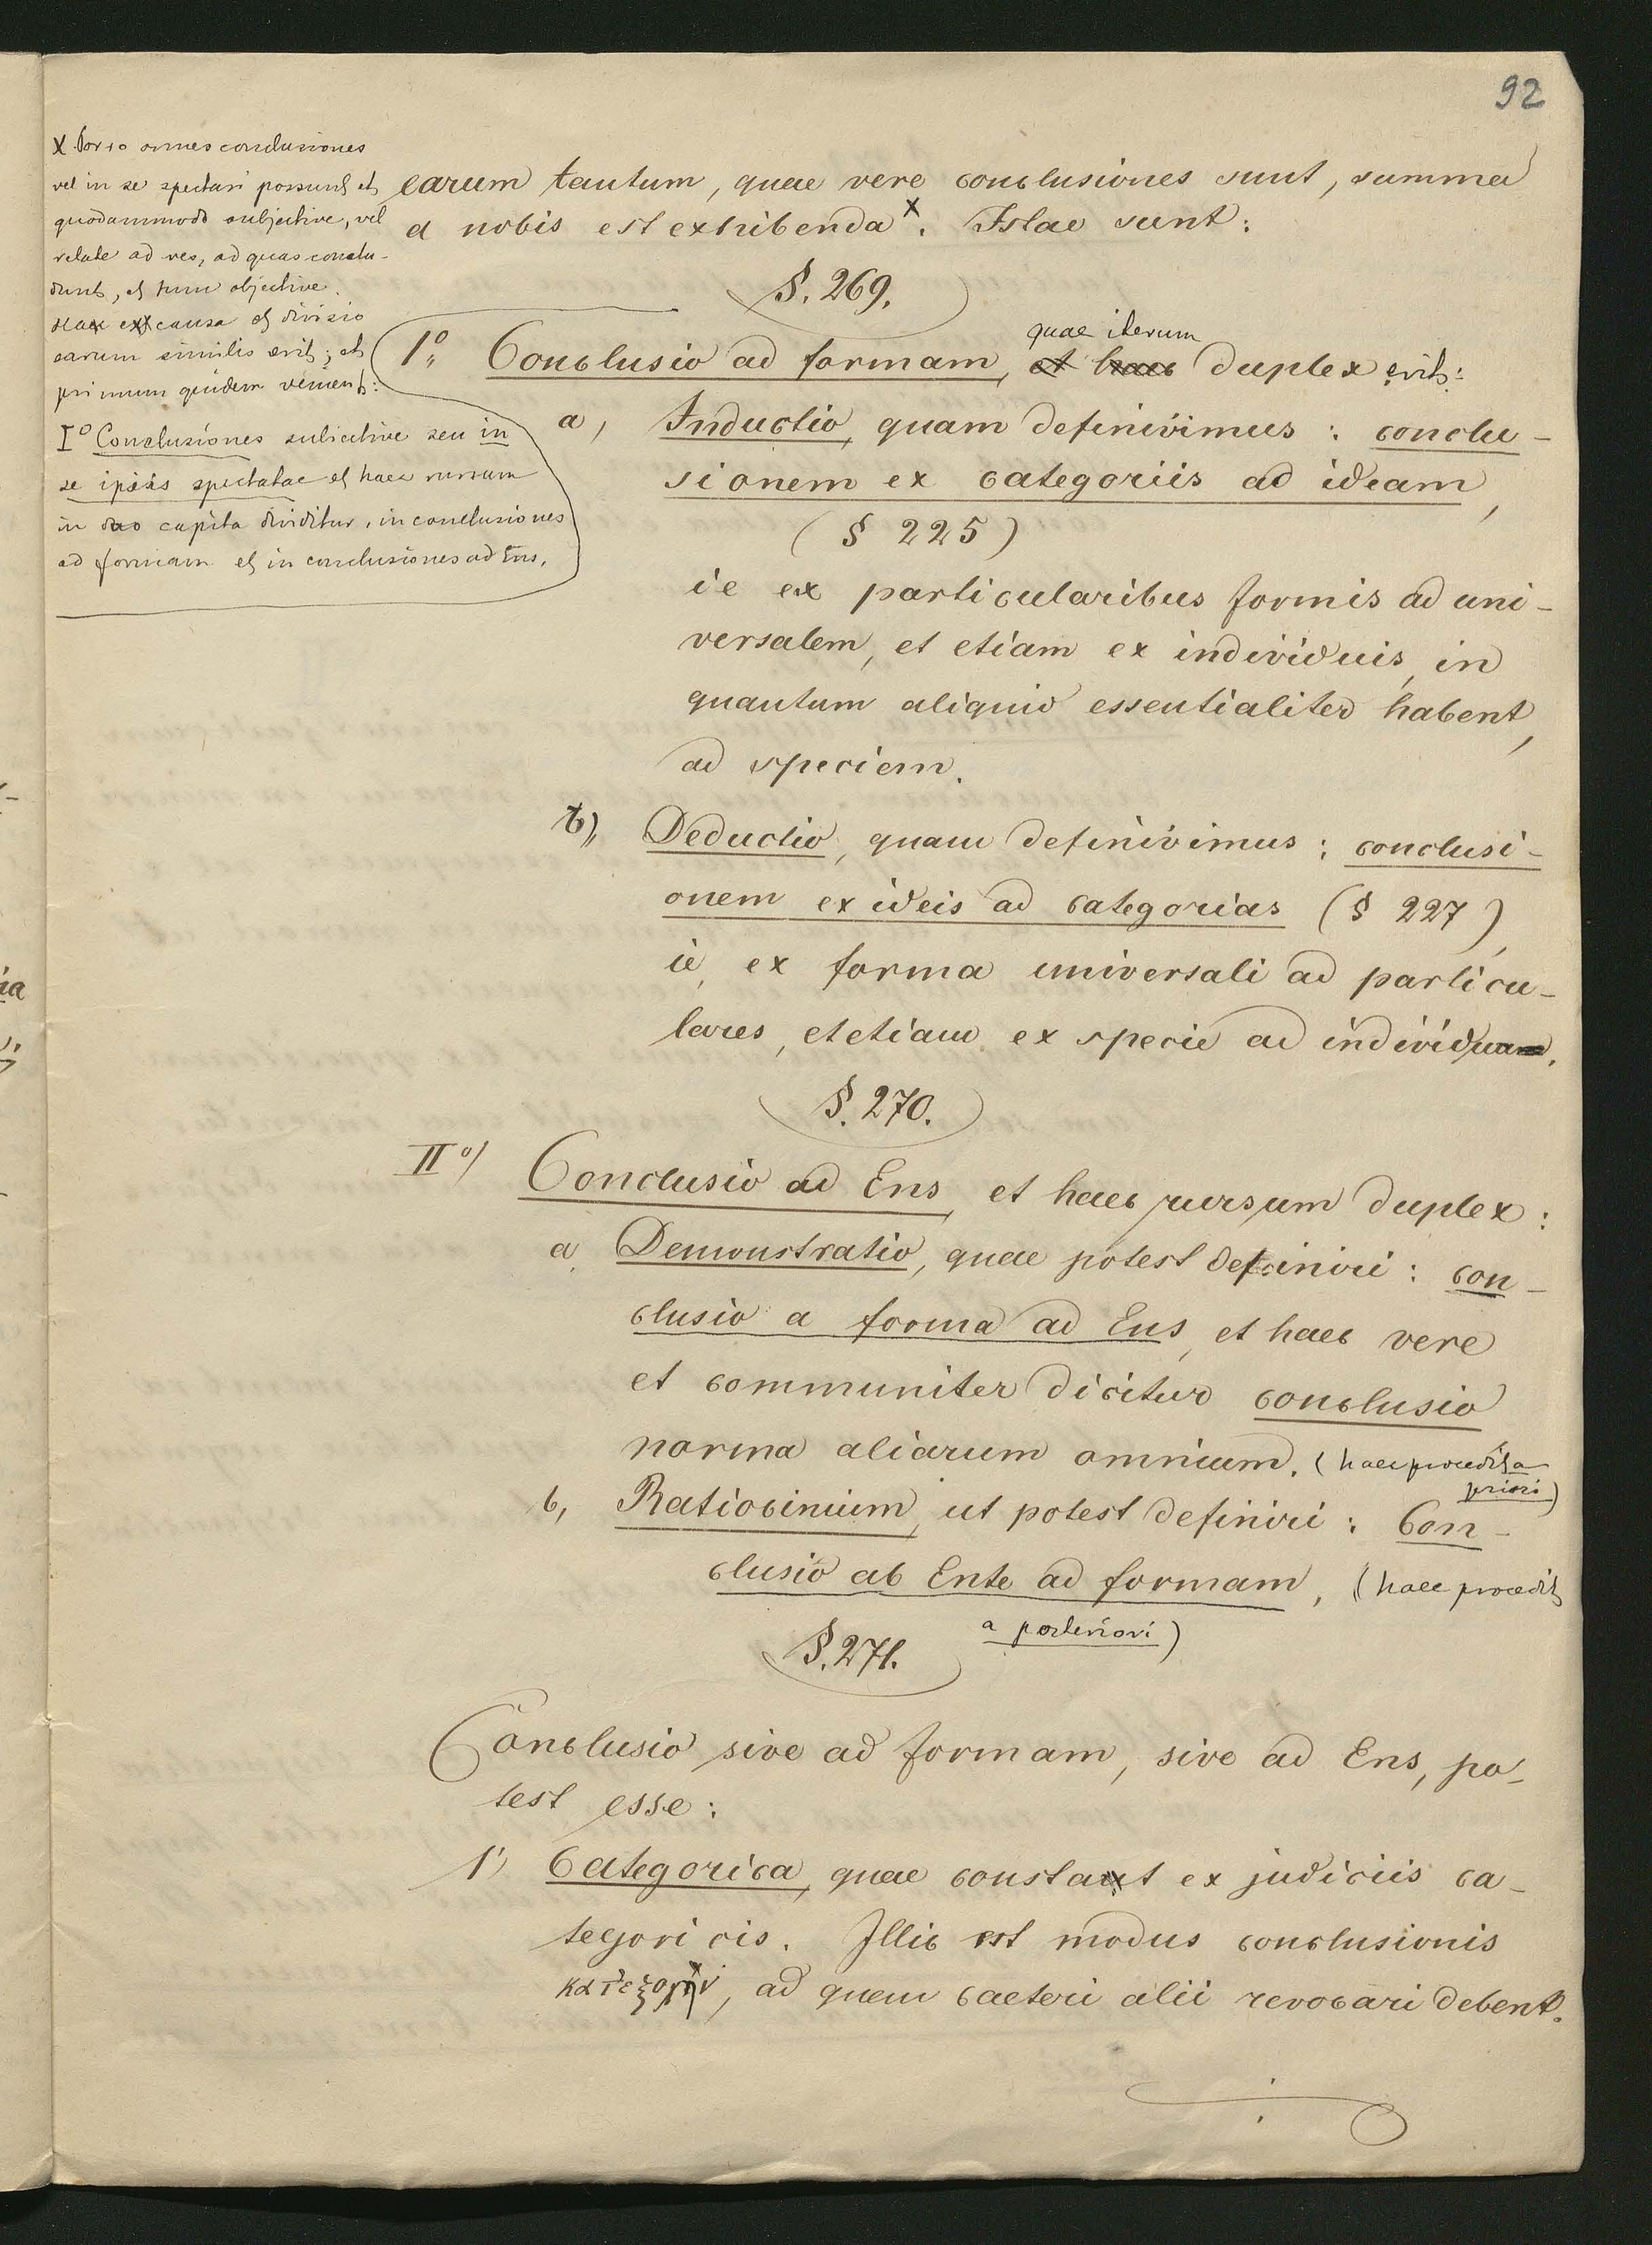 92
X Porro omnes conclusiones
vel in se spectari possunt et
quodammodo subjective, vel
relate ad res, ad quas conclu-
dunt, et tunc objective.
Hac ex causa et divisio
earum similis erit; et
primum quidem venient:
I° Conclusiones subiective seu in
se ipsis spectatae et haec rursum
in duo capita dividitur, in conclusiones
ad formam et in conclusiones ad Ens.
earum tantum, quae vere conclusiones sunt, summa
a nobis est exhibenda X. Istae sunt:
§. 269.
quae iterum
1° Conclusio ad formam, et haec duplex erit:
a, Inductio, quam definivimus: conclu-
sionem ex categoriis ad ideam,
(§ 225)
ie ex particularibus formis ad uni-
versalem, et etiam ex individuis, in
quantum aliquid essentialiter habent,
ad speciem.
b), Deductio, quam definivimus: conclusi-
onem ex ideis ad categorias (§ 227),
ie, ex forma universali ad particu-
lares, et etiam ex specie ad individua.
§. 270.
II°) Conclusio ad Ens, et haec rursum duplex:
a, Demonstratio, quae potest definiri: con-
clusio a forma ad Ens, et haec vere
et communiter dicitur conclusio
norma aliarum omnium. (haec procedit a
priori)
b, Ratiocinium, ut potest definiri: Con-
clusio ab Ente ad formam, (haec procedit
a posteriori)
§. 271.
Conclusio sive ad formam, sive ad Ens, po-
test esse:
1) Categorica, quae constat ex judiciis ca-
tegoricis. Illic est modus conclusionis
κατεξοχήν, ad quem caeteri alii revocari debent.